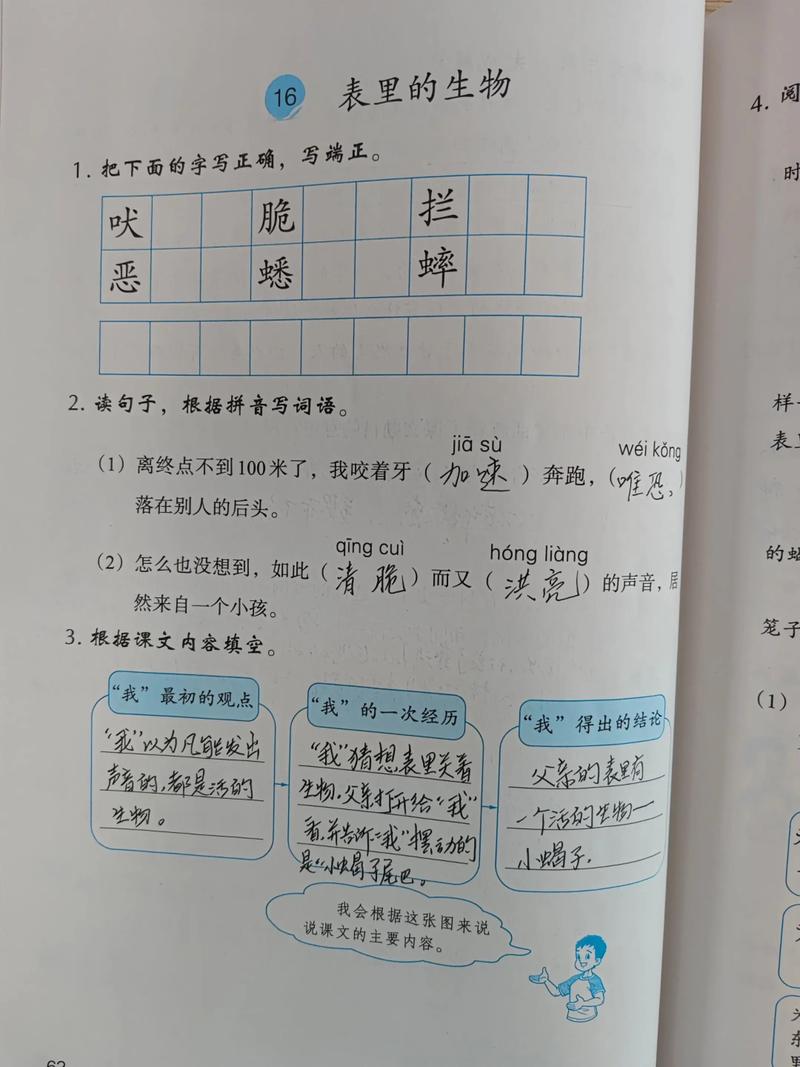 16 表里的生物
1. 把下面的字写正确，写端正。
吠 脆 拦
恶 蟋 蟀
2. 读句子，根据拼音写词语。
jiā sù wéi kǒng
（1）离终点不到100米了，我咬着牙（加速）奔跑，（唯恐）
落在别人的后头。
qīng cuì hóng liàng
（2）怎么也没想到，如此（清脆）而又（洪亮）的声音，居
然来自一个小孩。
3. 根据课文内容填空。
“我”最初的观点
“我”以为凡能发出
声音的，都是活的
生物。
“我”的一次经历
“我”猜想表里关着
生物，父亲打开给“我”
看，并告诉“我”摆动的
是“小蝎子尾巴。
“我”得出的结论
父亲的表里有
一个活的生物一
小蝎子．
我会根据这张图来说
说课文的主要内容。
62
4. 阅
时
样
表
的蟋
笼子
（1）